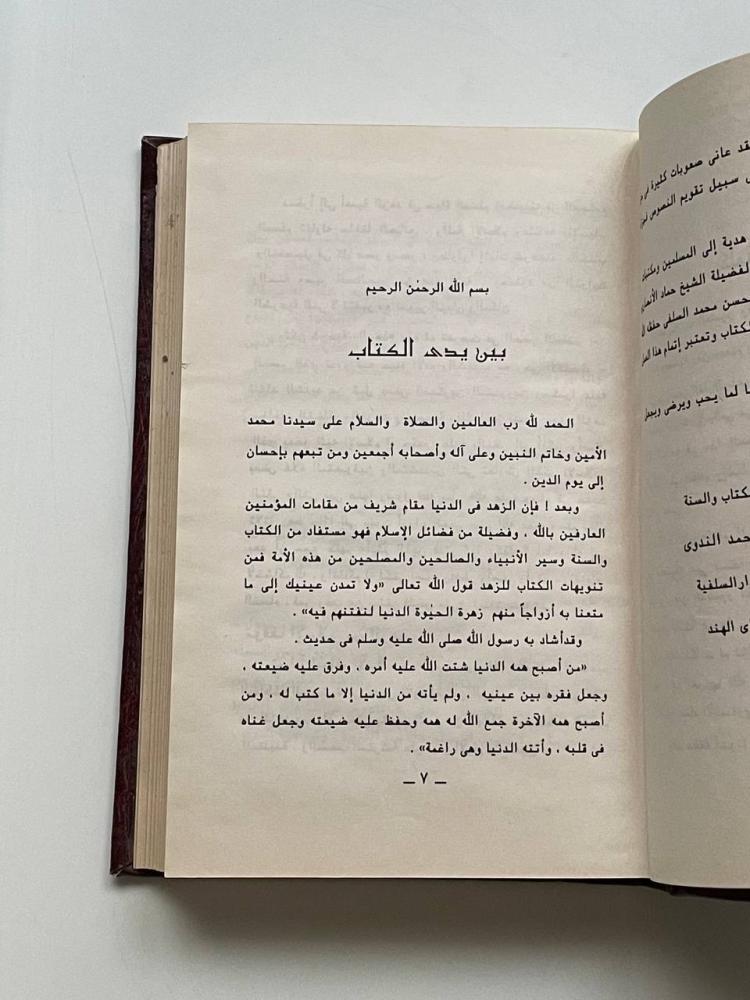 قد عانى صعوبات كثيرة فى
سبيل تقويم النصوص
هدية إلى المسلمين
لفضيلة الشيخ حماد
حسن محمد السلفى حفظه
الكتاب وتعتبر إتمام هذا
لما يحب ويرضى ويجعل
الكتاب والسنة
حمد الندوى
دارالسلفية
الهند
بسم الله الرحمٰن الرحيم
بين يدى الكتاب
الحمد لله رب العالمين والصلاة والسلام على سيدنا محمد
الأمين وخاتم النبين وعلى آله وأصحابه أجمعين ومن تبعهم بإحسان
إلى يوم الدين .
وبعد ! فإن الزهد فى الدنيا مقام شريف من مقامات المؤمنين
العارفين بالله ، وفضيلة من فضائل الإسلام فهو مستفاد من الكتاب
والسنة وسير الأنبياء والصالحين والمصلحين من هذه الأمة فمن
تنويهات الكتاب للزهد قول الله تعالى «ولا تمدن عينيك إلى ما
متعنا به أزواجاً منهم زهرة الحيٰوة الدنيا لنفتنهم فيه» .
وقدأشاد به رسول الله صلى الله عليه وسلم فى حديث .
«من أصبح همه الدنيا شتت الله عليه أمره ، وفرق عليه ضيعته ،
وجعل فقره بين عينيه ، ولم يأته من الدنيا إلا ما كتب له ، ومن
أصبح همه الآخرة جمع الله له همه وحفظ عليه ضيعته وجعل غناه
فى قلبه ، وأتته الدنيا وهى راغمة» .
ــ ٧ ــ